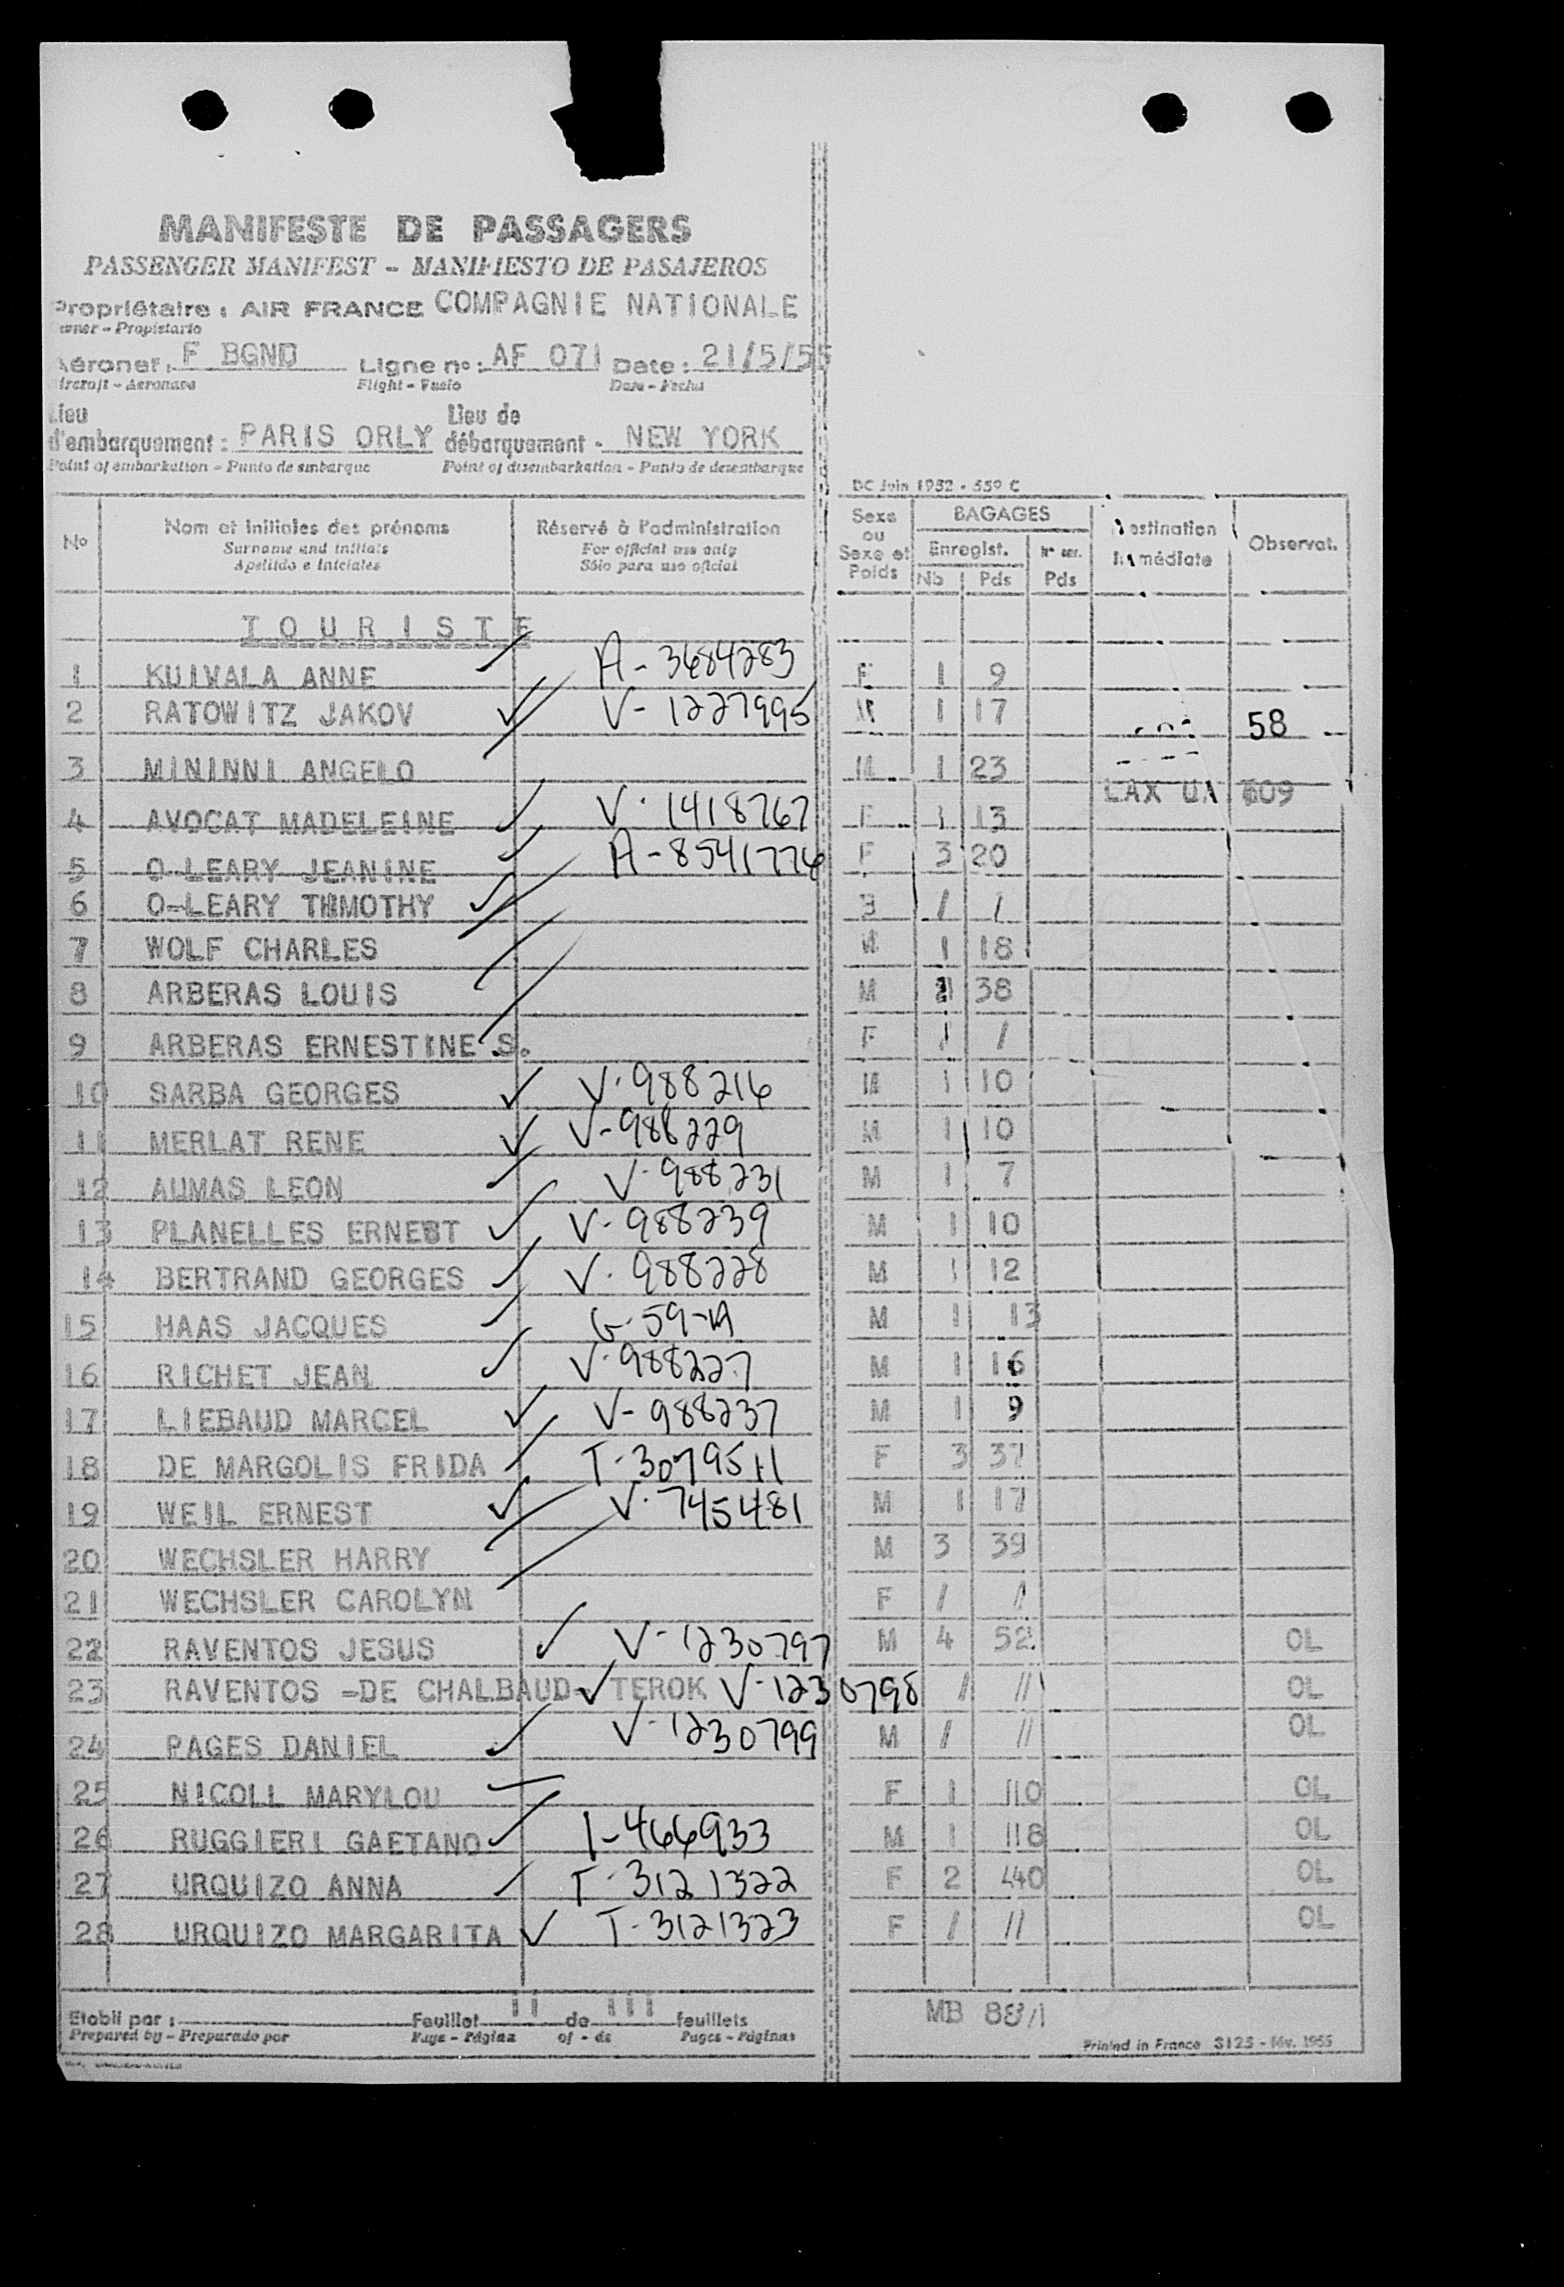 MANIFESTE DE PASSAGERS
PASSENGER MANIFEST - MANIFIESTO DE PASAJEROS
Propriétaire : AIR FRANCE COMPAGNIE NATIONALE
Owner - Propietario
Aéronef : F BGND Ligne n° : AF 071 Date : 21/5/55
Aircraft - Aeronave Flight - Vuelo Date - Fecha
Lieu d'embarquement : PARIS ORLY Lieu de débarquement - NEW YORK
Point of embarkation - Punto de embarque Point of disembarkation - Punto de desembarque
DC Juin 1952 - 559 C
No Nom et initiales des prénoms Réservé à l'administration Sexe ou Sexe et Poids BAGAGES Destination immédiate Observat.
Surname and initials For official use only Enregist.
Apellido e iniciales Sólo para uso oficial Nb Pds Pds
TOURISTE
1 KUIVALA ANNE A-3684283 F 1 9
2 RATOWITZ JAKOV V-1227995 M 1 17 58
3 MININNI ANGELO M 1 23
LAX UA 609
4 AVOCAT MADELEINE V-1418767 F 1 13
5 O-LEARY JEANINE A-8541776 F 3 20
6 O-LEARY THIMOTHY / /
7 WOLF CHARLES M 1 18
8 ARBERAS LOUIS M 38
9 ARBERAS ERNESTINE S. F / /
10 SARBA GEORGES V-988216 M 1 10
11 MERLAT RENE V-988229 M 1 10
12 AUMAS LEON V-988231 M 1 7
13 PLANELLES ERNEST V-988239 M 1 10
14 BERTRAND GEORGES V-988228 M 1 12
15 HAAS JACQUES G-59-A M 1 13
16 RICHET JEAN V-988227 M 1 16
17 LIEBAUD MARCEL V-988237 M 1 9
18 DE MARGOLIS FRIDA T-3079511 F 3 37
19 WEIL ERNEST V-745481 M 1 17
20 WECHSLER HARRY M 3 39
21 WECHSLER CAROLYN F / /
22 RAVENTOS JESUS V-1230797 M 4 52 OL
23 RAVENTOS -DE CHALBAUD- TEROK V-1230798 / // OL
24 PAGES DANIEL V-1230799 M / // OL
25 NICOLL MARYLOU F 1 110 OL
26 RUGGIERI GAETANO I-466933 M 1 118 OL
27 URQUIZO ANNA T-3121322 F 2 440 OL
28 URQUIZO MARGARITA T-3121323 F / // OL
Etabli par : Feuillet II de III feuillets MB 88/1
Prepared by - Preparado por Page - Página of - de Pages - Páginas
Printed in France 3125 - fév. 1955